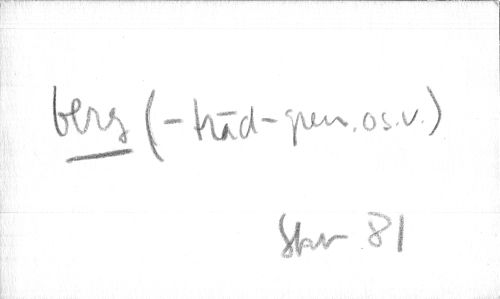 berg (-träd-gren. o.s.v.)
81